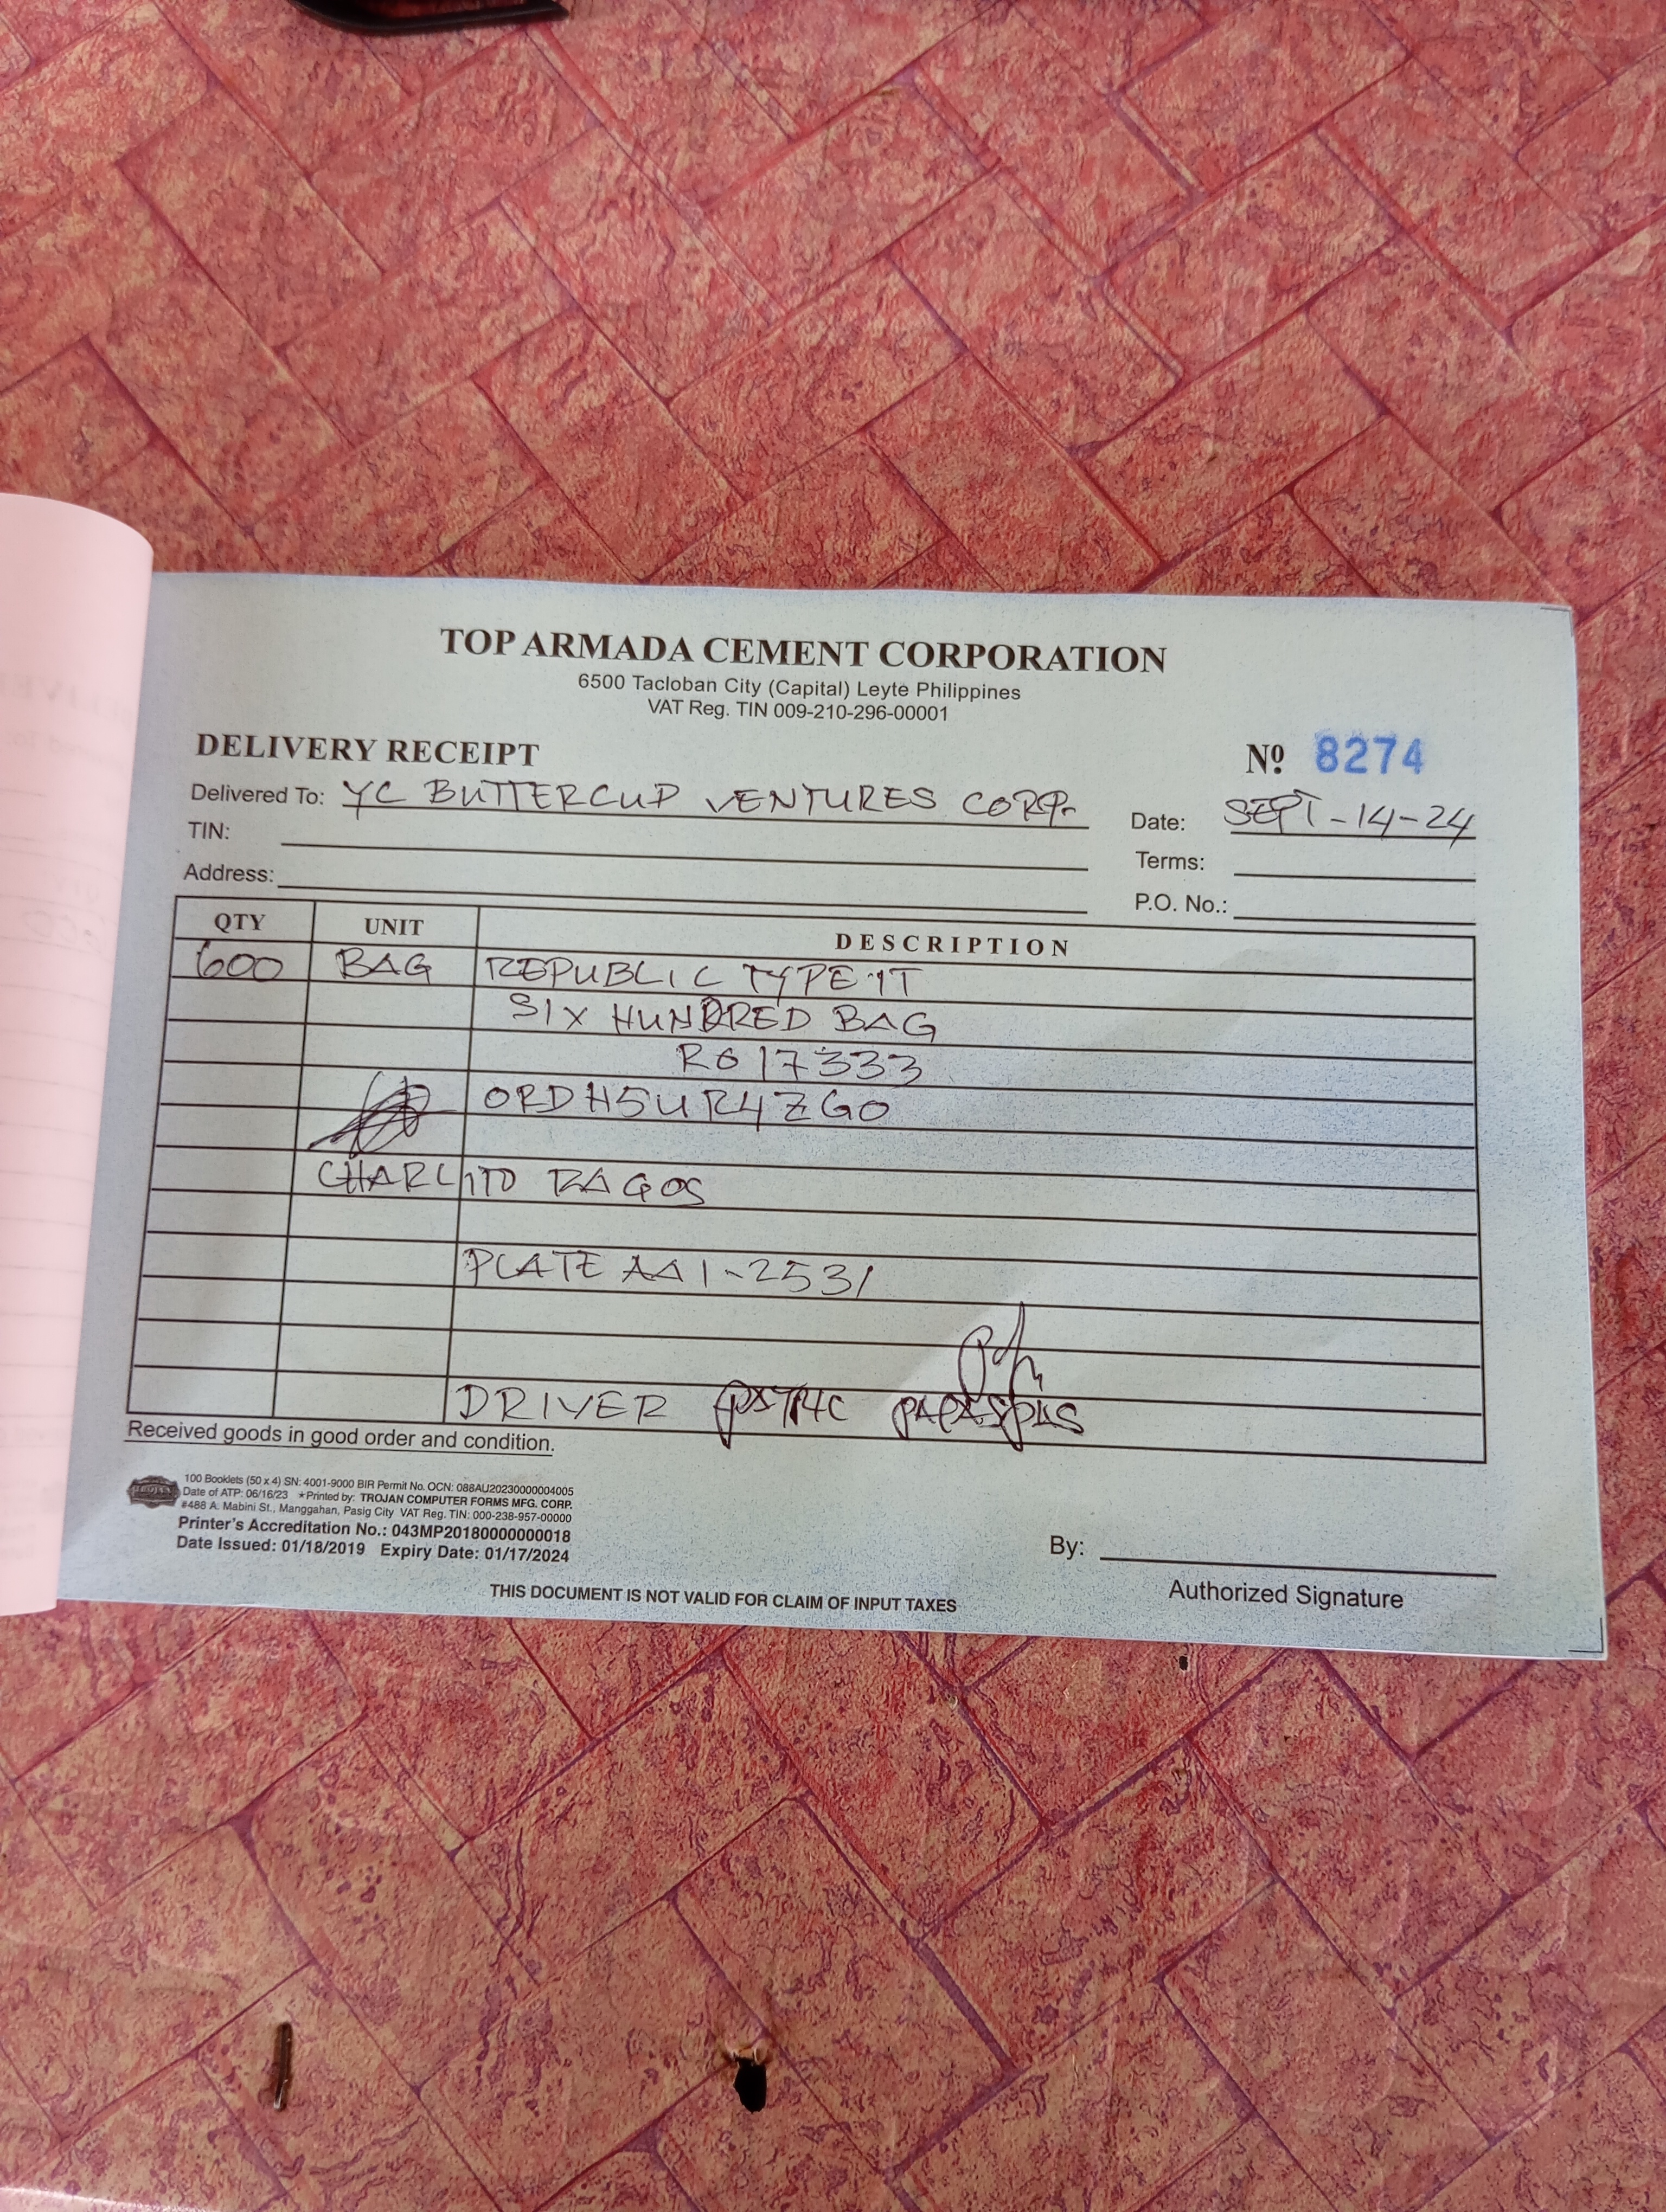 TOP ARMADA CEMENT CORPORATION
6500 Tacloban City (Capital) Leyte Philippines
VAT Reg. TIN 009-210-296-00001
DELIVERY RECEIPT
Nº 8274
Delivered To: YC BUTTERCUP VENTURES CORP.
Date: SEPT-14-24
TIN:
Terms:
Address:
P.O. No.:
QTY UNIT DESCRIPTION
600 BAG REPUBLIC TYPE 1T
SIX HUNDRED BAG
R617333
ORDH5UR4ZGO
CHARLITO RAGOS
PLATE AA1-2531
DRIVER
Received goods in good order and condition.
TROJAN
100 Booklets (50 x 4) SN: 4001-9000 BIR Permit No. OCN: 088AU20230000004005
Date of ATP: 06/16/23 ★Printed by: TROJAN COMPUTER FORMS MFG. CORP.
#488 A. Mabini St., Manggahan, Pasig City VAT Reg. TIN: 000-238-957-00000
Printer's Accreditation No.: 043MP20180000000018
Date Issued: 01/18/2019 Expiry Date: 01/17/2024
By:
Authorized Signature
THIS DOCUMENT IS NOT VALID FOR CLAIM OF INPUT TAXES